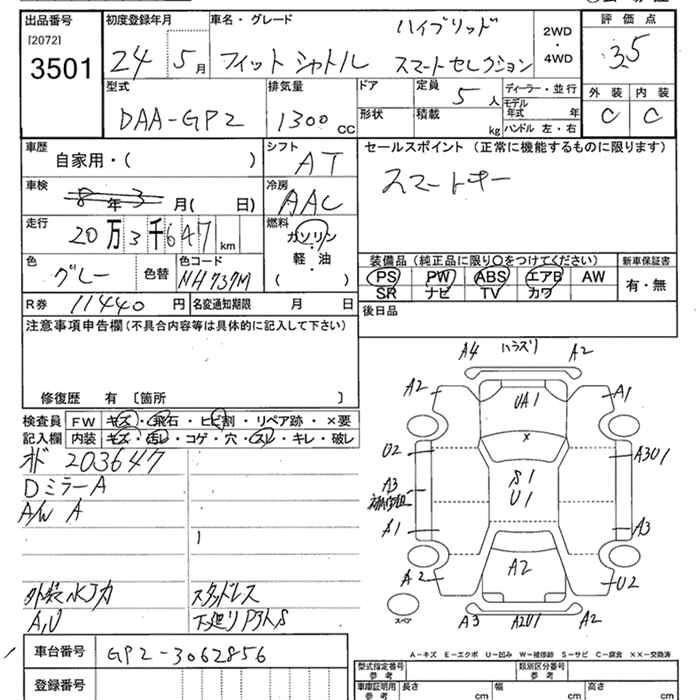 出品番号 初度登録年月 車名・グレード 評価点
[2072]
3501
24 5月 フィットシャトル ハイブリッド スマートセレクション 2WD・4WD 3.5
型式 DAA-GP2
排気量 1300 CC
ドア
形状
定員 5人
積載 kg
ディーラー・並行
モデル年式 年
ハンドル 左・右
外装 C
内装 C
車歴 自家用・( )
シフト AT
セールスポイント (正常に機能するものに限ります)
スマートキー
車検 8年3月( 日)
冷房 AAC
走行 20万3千647 km
燃料 ガソリン・軽油・( )
色 グレー
色替
色コード NH737M
装備品 (純正品に限り○をつけてください)
PS PW ABS エアB AW
SR ナビ TV カワ
新車保証書 有・無
R券 11440円
名変通知期限 月 日
後日品
注意事項申告欄(不具合内容等は具体的に記入して下さい)
修復歴 有 〔箇所 〕
検査員記入欄
FW キズ・飛石・ヒビ割・リペア跡・×要
内装 キズ・汚レ・コゲ・穴・スレ・キレ・破レ
オド 203647
DミラーA
A/W A
外装水ジカ
A,U
スタッドレス
下廻りPタトS
A4 ハラズリ A2
A2 UA1 A1
U2 × A3U1
A3 S1
U1
A1 A3
A2 A2 U2
スペア
A3 A2U1 A2
車台番号 GP2-3062856
登録番号
A-キズ E-エクボ U-凹み W-補修跡 S-サビ C-腐食 XX-交換済
型式指定番号 参考
類別区分番号 参考
車庫証明用 参考
長さ cm
幅 cm
高さ cm